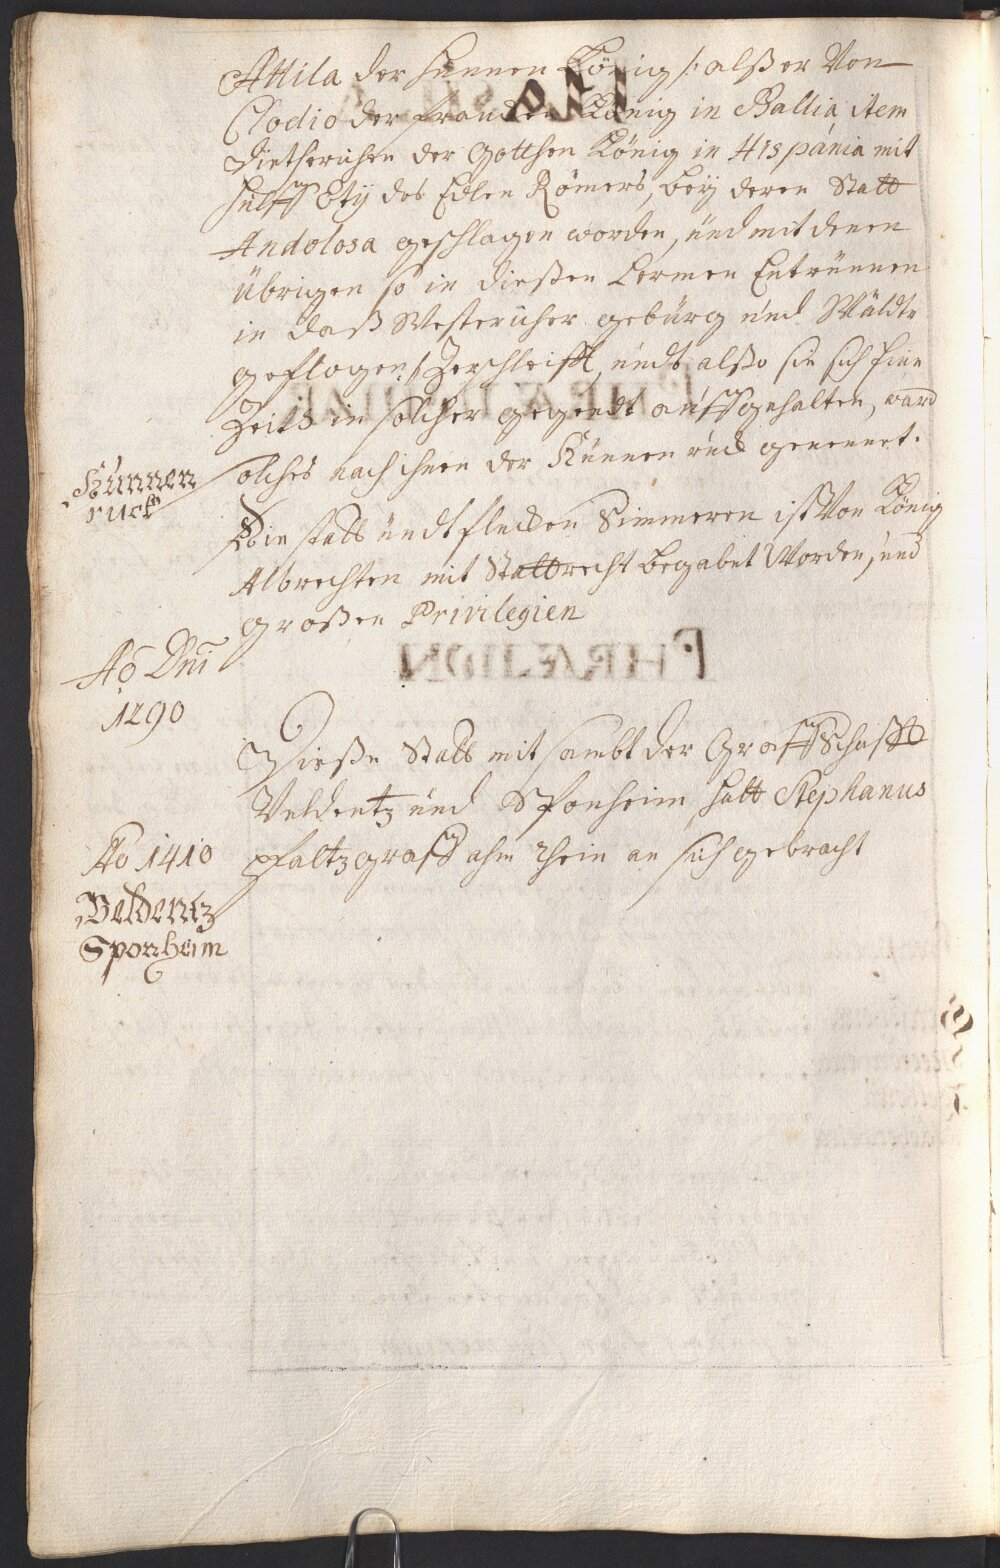 Attila der Hunnen König /: alß er Von
Clodio der francken König in Gallia, item
Dietherichen der Gotthen König in Hispania mit
hülff Etÿ des Edlen Römers, beÿ deren Statt
Andolosa geschlagen worden, und mit denen
übrigen so in dießen Lermen Entrunnen
in daß Westericher gebürg und Wäldt
geflogen :/ Zerschleifft, undt alßo sie sich seine
Zeit in solcher gegendt auffgehalten, ward
solches nach ihnen der Hunnen ruck genennet.
Hunnen
ruck
Die statt undt flecken Simmeren ist Von König
Albrechten mit Stattrecht begabet Worden, und
großen Privilegien
Ao Dni
1290
Dieße Statt mit sambt der Graffschafft
Veldentz und Sponheim, hatt Stephanus
pfaltzgraff ahm rhein an sich gebracht
Ao 1410
Veldentz
Sponheim